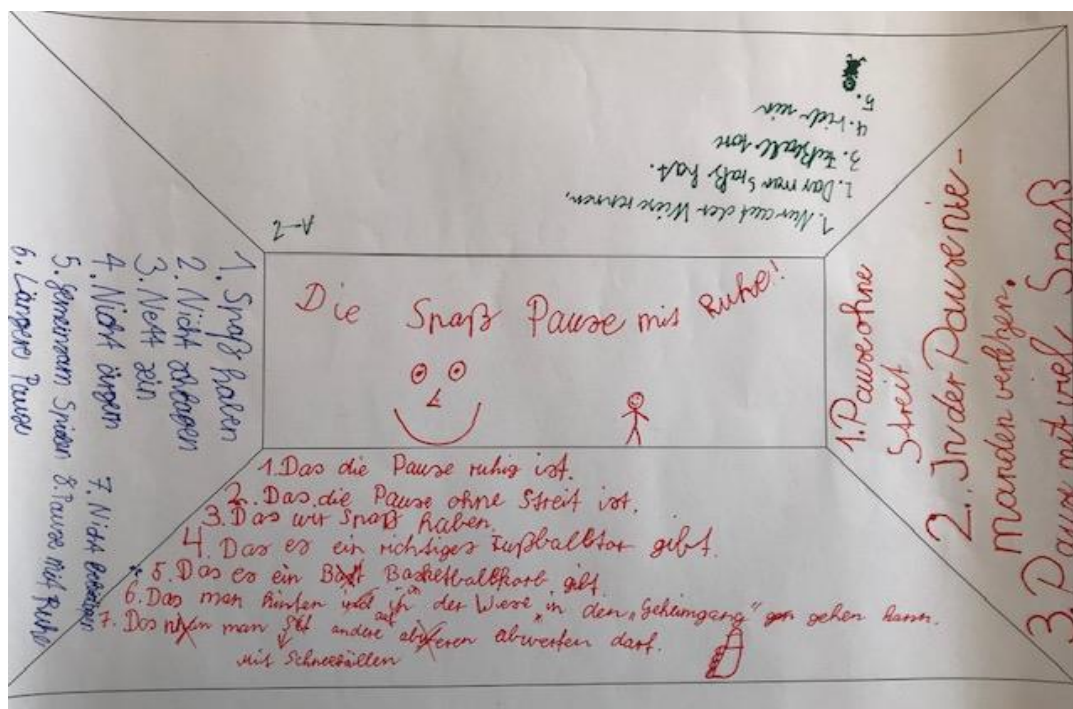 1. Nur auf der Wiese rennen.
2. Das man Spaß hat.
3. Fußball tore
4.
5.
Die Spaß Pause mit Ruhe!
1. Spaß haben
2. Nicht schlagen
3. Nett sein
4. Nicht ärgern
5. gemeinsam Spielen
6. Längere Pause
7. Nicht beleidigen
8. Pause mit Ruhe
1. Pause ohne
Streit
2. In der Pause nie-
manden verletzen.
3. Pause mit viel Spaß
1. Das die Pause ruhig ist.
2. Das die Pause ohne Streit ist.
3. Das wir Spaß haben.
4. Das es ein richtiges Fußballtor gibt.
5. Das es ein Basketballkorb gibt.
6. Das man hinten auf der Wiese in den „Geheimgang" gehen kann.
7. Das man andere abwerfen darf.
mit Schneebällen